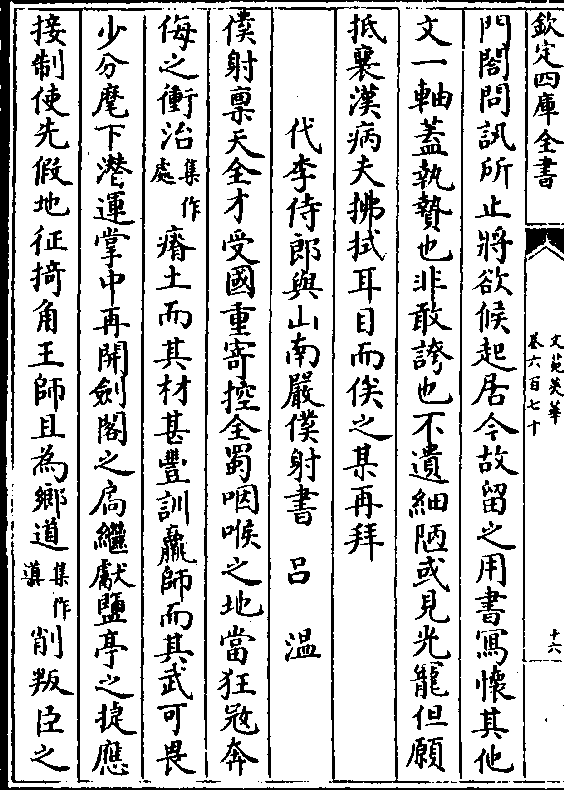 欽定四庫全書
文苑英華
卷六百七十
十六
門閤問訊所止將欲候起居今故留之用書寫懷其他
文一軸蓋執贄也非敢誇也不遺細陋或見光寵但願
抵襄漢病夫拂拭耳目而俟之某再拜
代李侍郎與山南嚴僕射書 吕溫
僕射禀天全才受國重寄控全蜀咽喉之地當狂冦奔
侮之衝治集作處瘠土而其材甚豐訓羸師而其武可畏
少分麾下濳運掌中再開劍閣之扃繼獻鹽亭之捷應
接制使先假地征掎角王師且為鄉道集作導削叛臣之